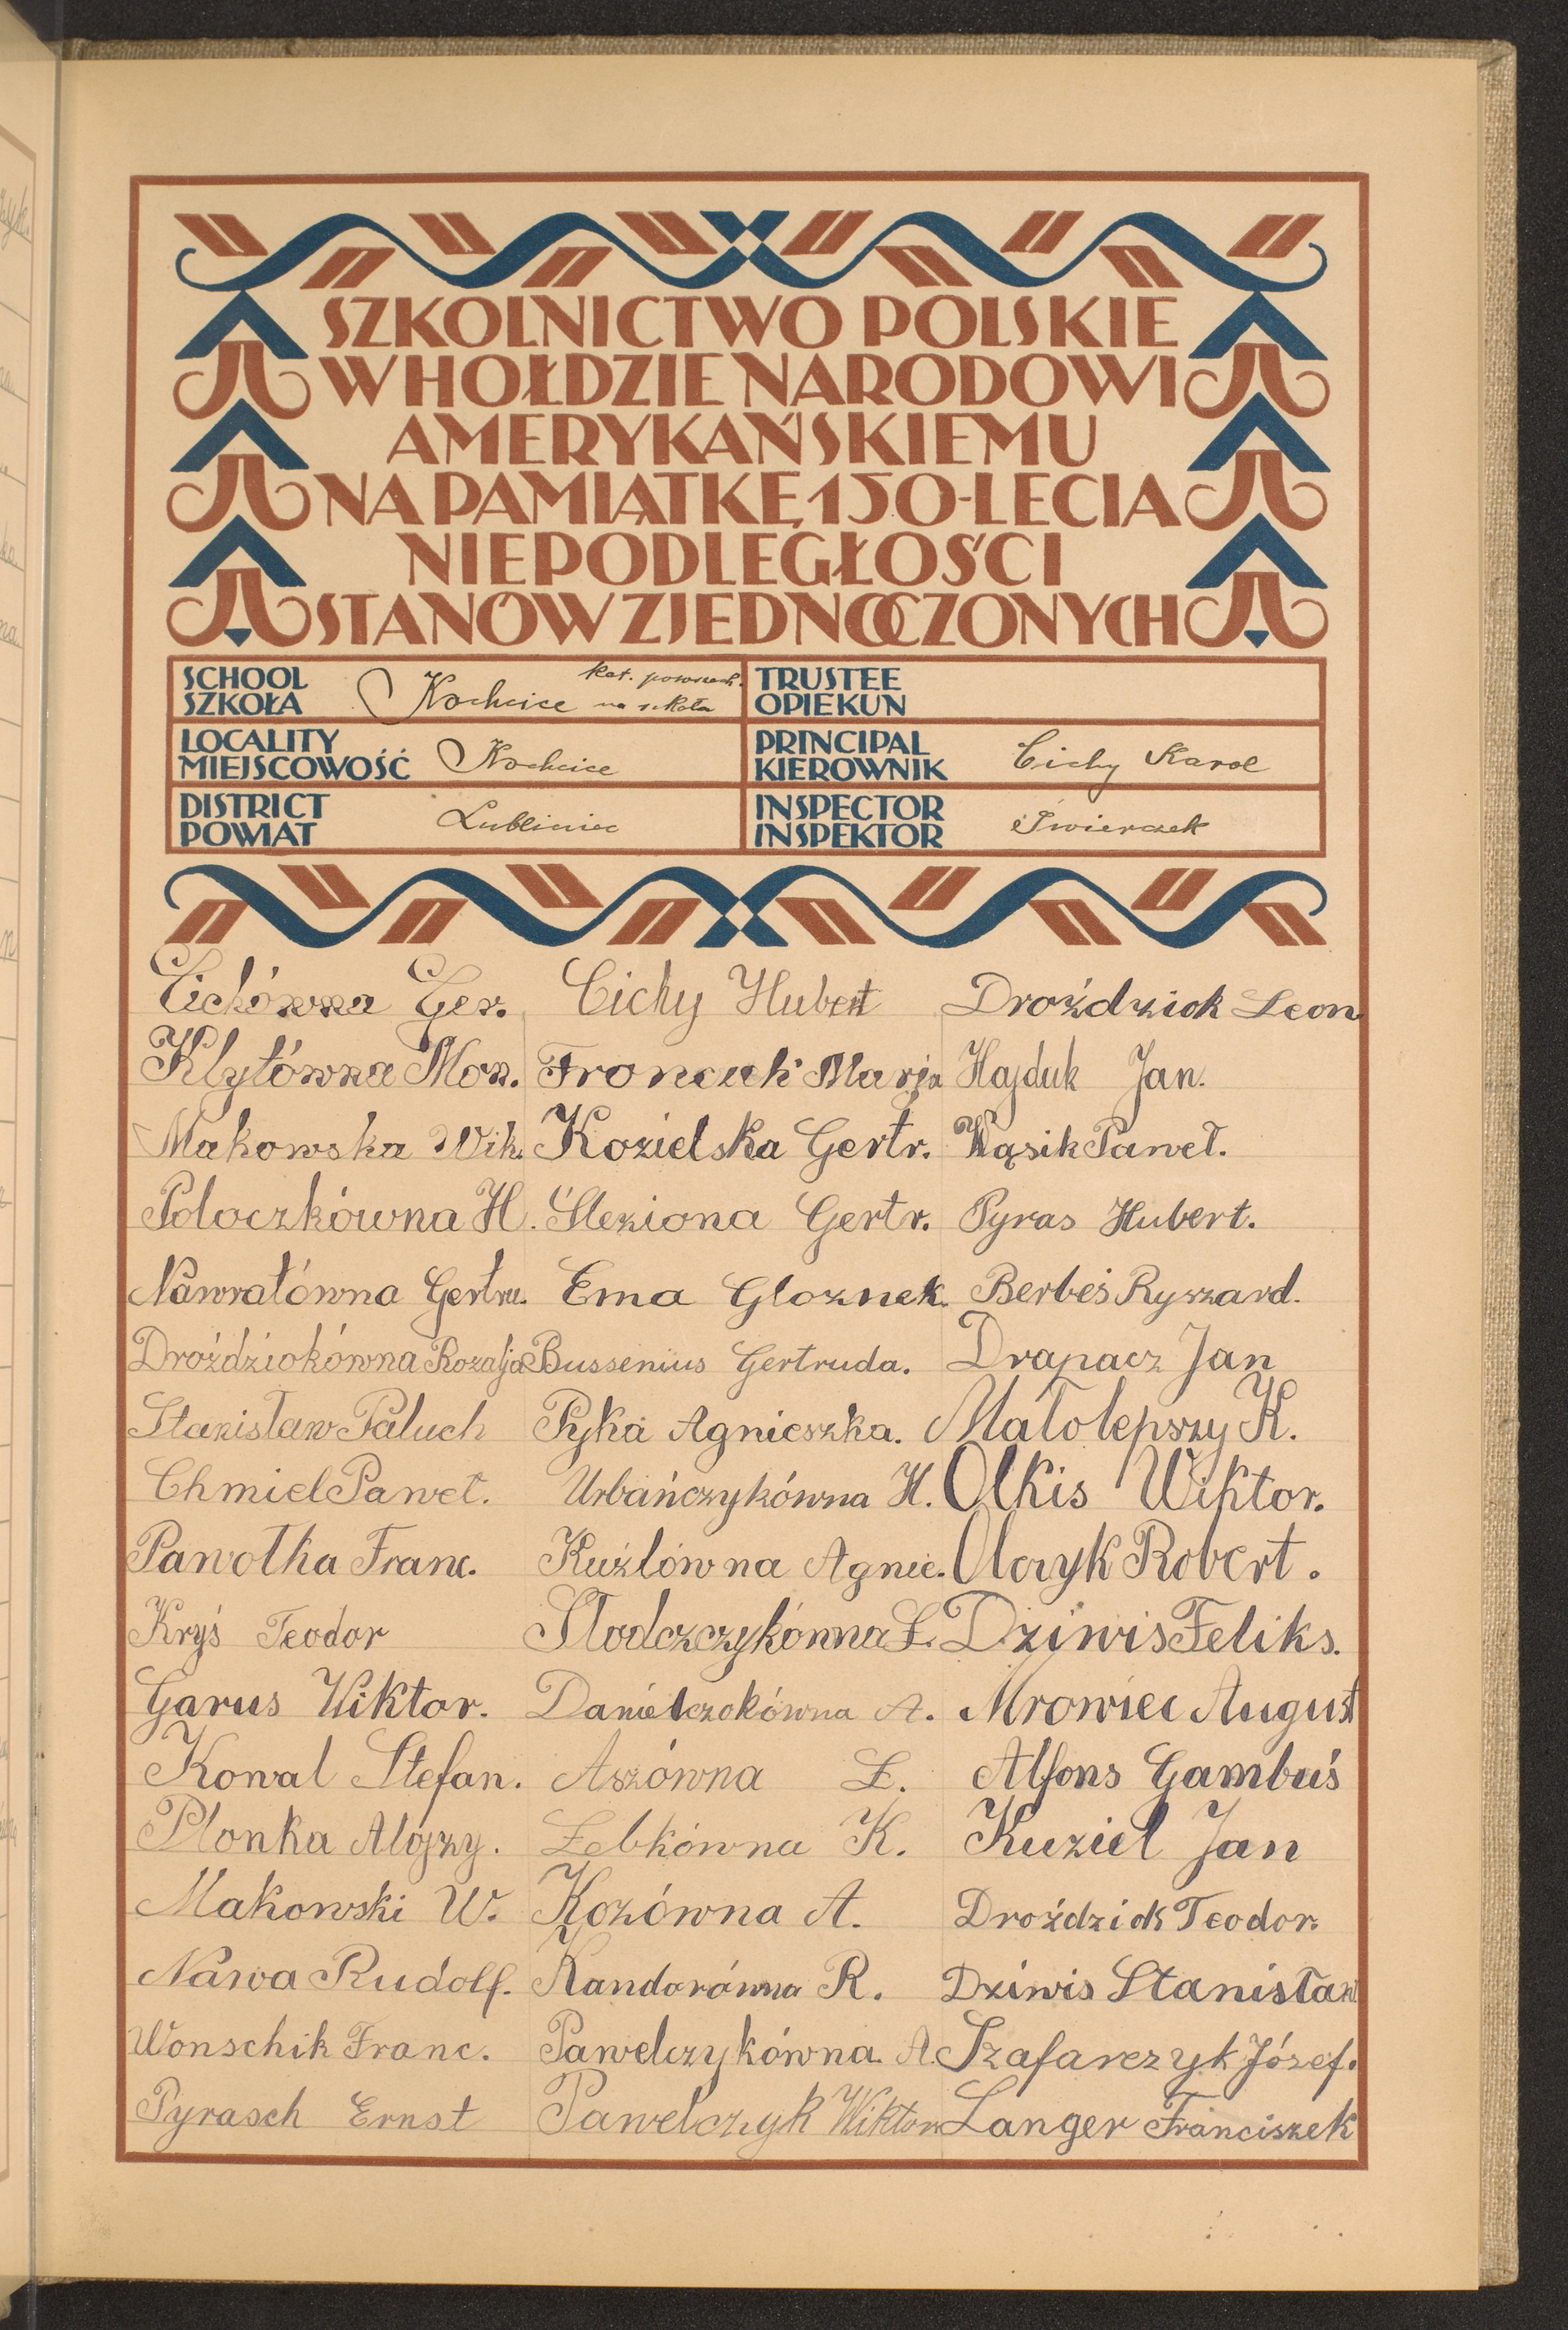 SZKOLNICTWO POLSKIE
W HOŁDZIE NARODOWI
AMERYKAŃSKIEMU
NA PAMIĄTKĘ 150-LECIA
NIEPODLEGŁOŚCI
STANÓW ZJEDNOCZONYCH
SCHOOL
SZKOŁA
kat. powszech.
Kochcice na szkoła
TRUSTEE
OPIEKUN
LOCALITY
MIEJSCOWOŚĆ Kochcice
PRINCIPAL
KIEROWNIK Cichy Karol
DISTRICT
POWIAT Lubliniec
INSPECTOR
INSPEKTOR Świerczek
Cichówna Ger. Cichy Hubert Droździok Leon
Klytówna Mon. Froncek Marja Hajduk Jan.
Makowska Wik. Kozielska Gertr. Wąsik Paweł.
Poloczkówna H. Śleziona Gertr. Pyras Hubert.
Nawratówna Gertru. Ema Gloznek. Berbeś Ryszard.
Droździokówna Rozalja Bussenius Gertruda. Drapacz Jan
Stanisław Paluch Pyka Agnieszka. Małolepszy K.
Chmiel Paweł. Urbańczykówna H. Olkis Wiktor.
Pawołka Franc. Kuźlówna Agnie. Olczyk Robert.
Kryś Teodor Słodczczykówna Ł. Dziwis Feliks.
Garus Wiktor. Danielczokówna A. Mrowiec August
Kowal Stefan. Aszówna Ł. Alfons Gambuś
Plonka Alojzy. Łebkówna K. Kuziel Jan
Makowski W. Kozówna A. Droździok Teodor.
Nawa Rudolf. Kandorówna R. Dziwis Stanisław
Wonschik Franc. Pawelczykówna A. Szafarczyk Józef.
Pyrasch Ernst Pawelczyk Wiktor Langer Franciszek